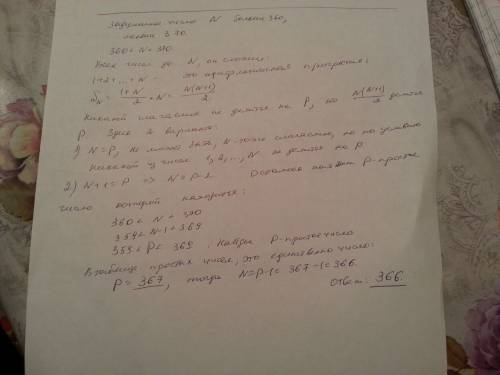 Задуманное число N больше 360,
меньше 370.
360 < N < 370.
Всех чисел до N, он сложил:
1+2+...+N - это арифметическая прогрессия:
S_N = (1+N)/2 · N = N(N+1)/2
Никакой слагаемое не делится на P, но N(N+1)/2 делится
P. Здесь 2 варианта:
1) N = P, но может быть, N - тоже слагаемое, но по условию
никакой из чисел 1, 2, ..., N не делится на P
2) N+1 = P => N = P-1. Осталось P-простое
число который находится:
360 < N < 370
359 < N-1 < 369
359 < P < 369. Найдем P-простое число
В таблице простых чисел, это единственно число:
P = 367, тогда N = P-1 = 367-1 = 366.
Ответ: 366.